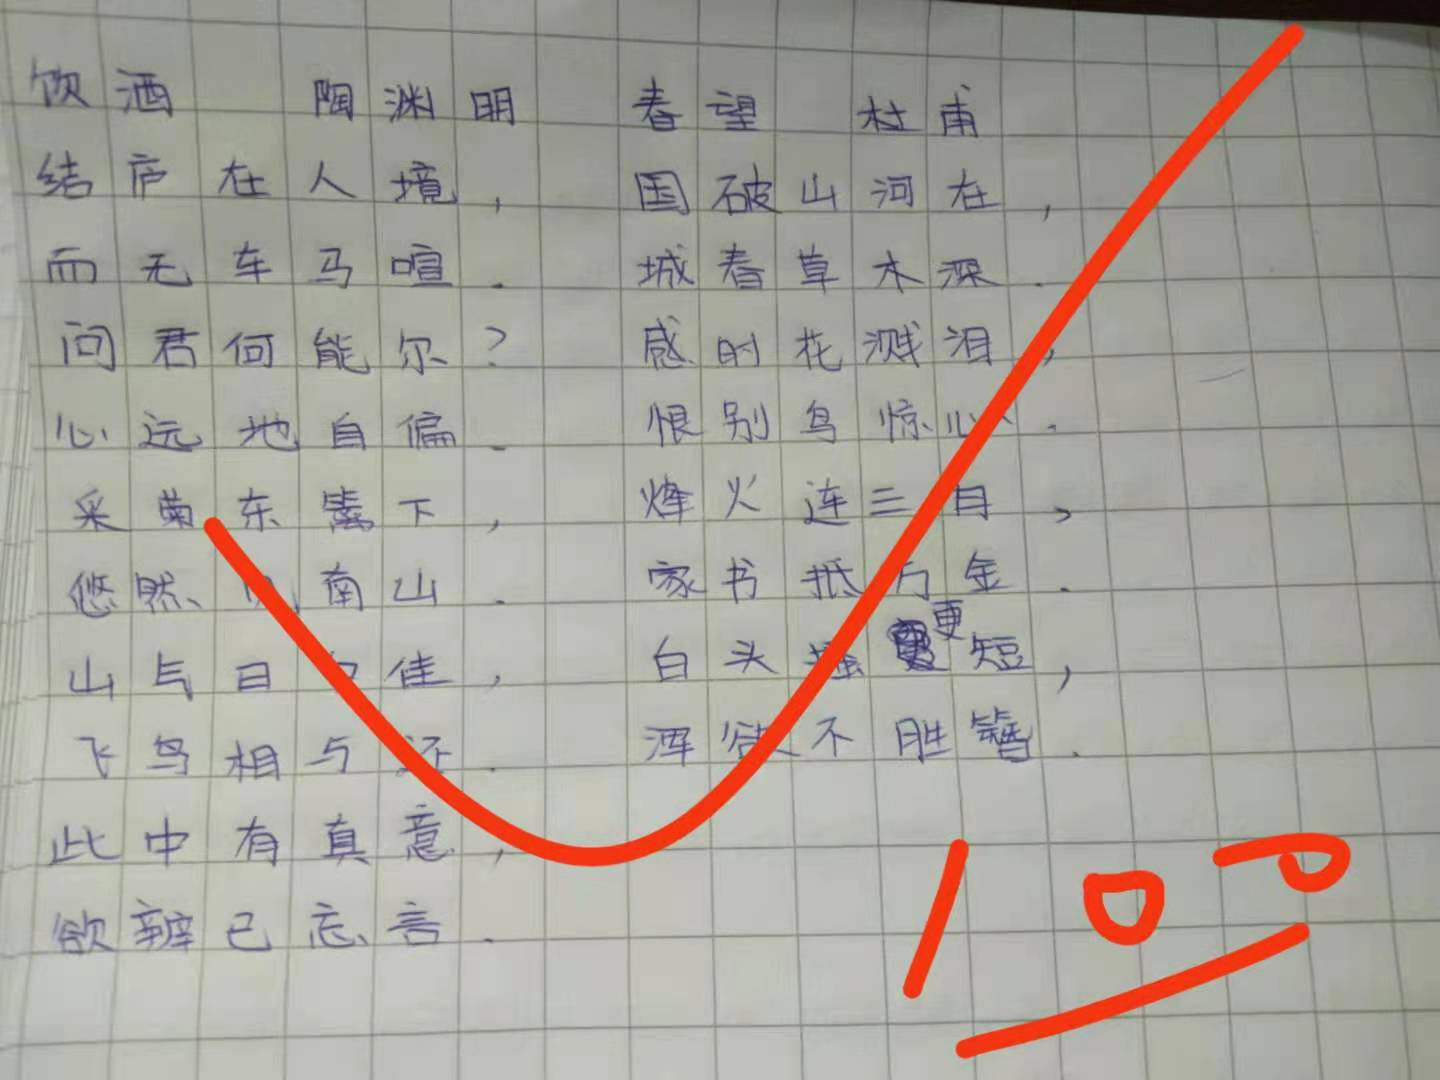 饮酒 陶渊明
结庐在人境，
而无车马喧.
问君何能尔？
心远地自偏.
采菊东篱下，
悠然 南山.
山与日 佳，
飞鸟相与还.
此中有真意，
欲辨已忘言.
春望 杜甫
国破山河在，
城春草木深.
感时花溅泪，
恨别鸟惊心.
烽火连三月、
家书抵万金.
白头搔更短，
浑欲不胜簪.
100